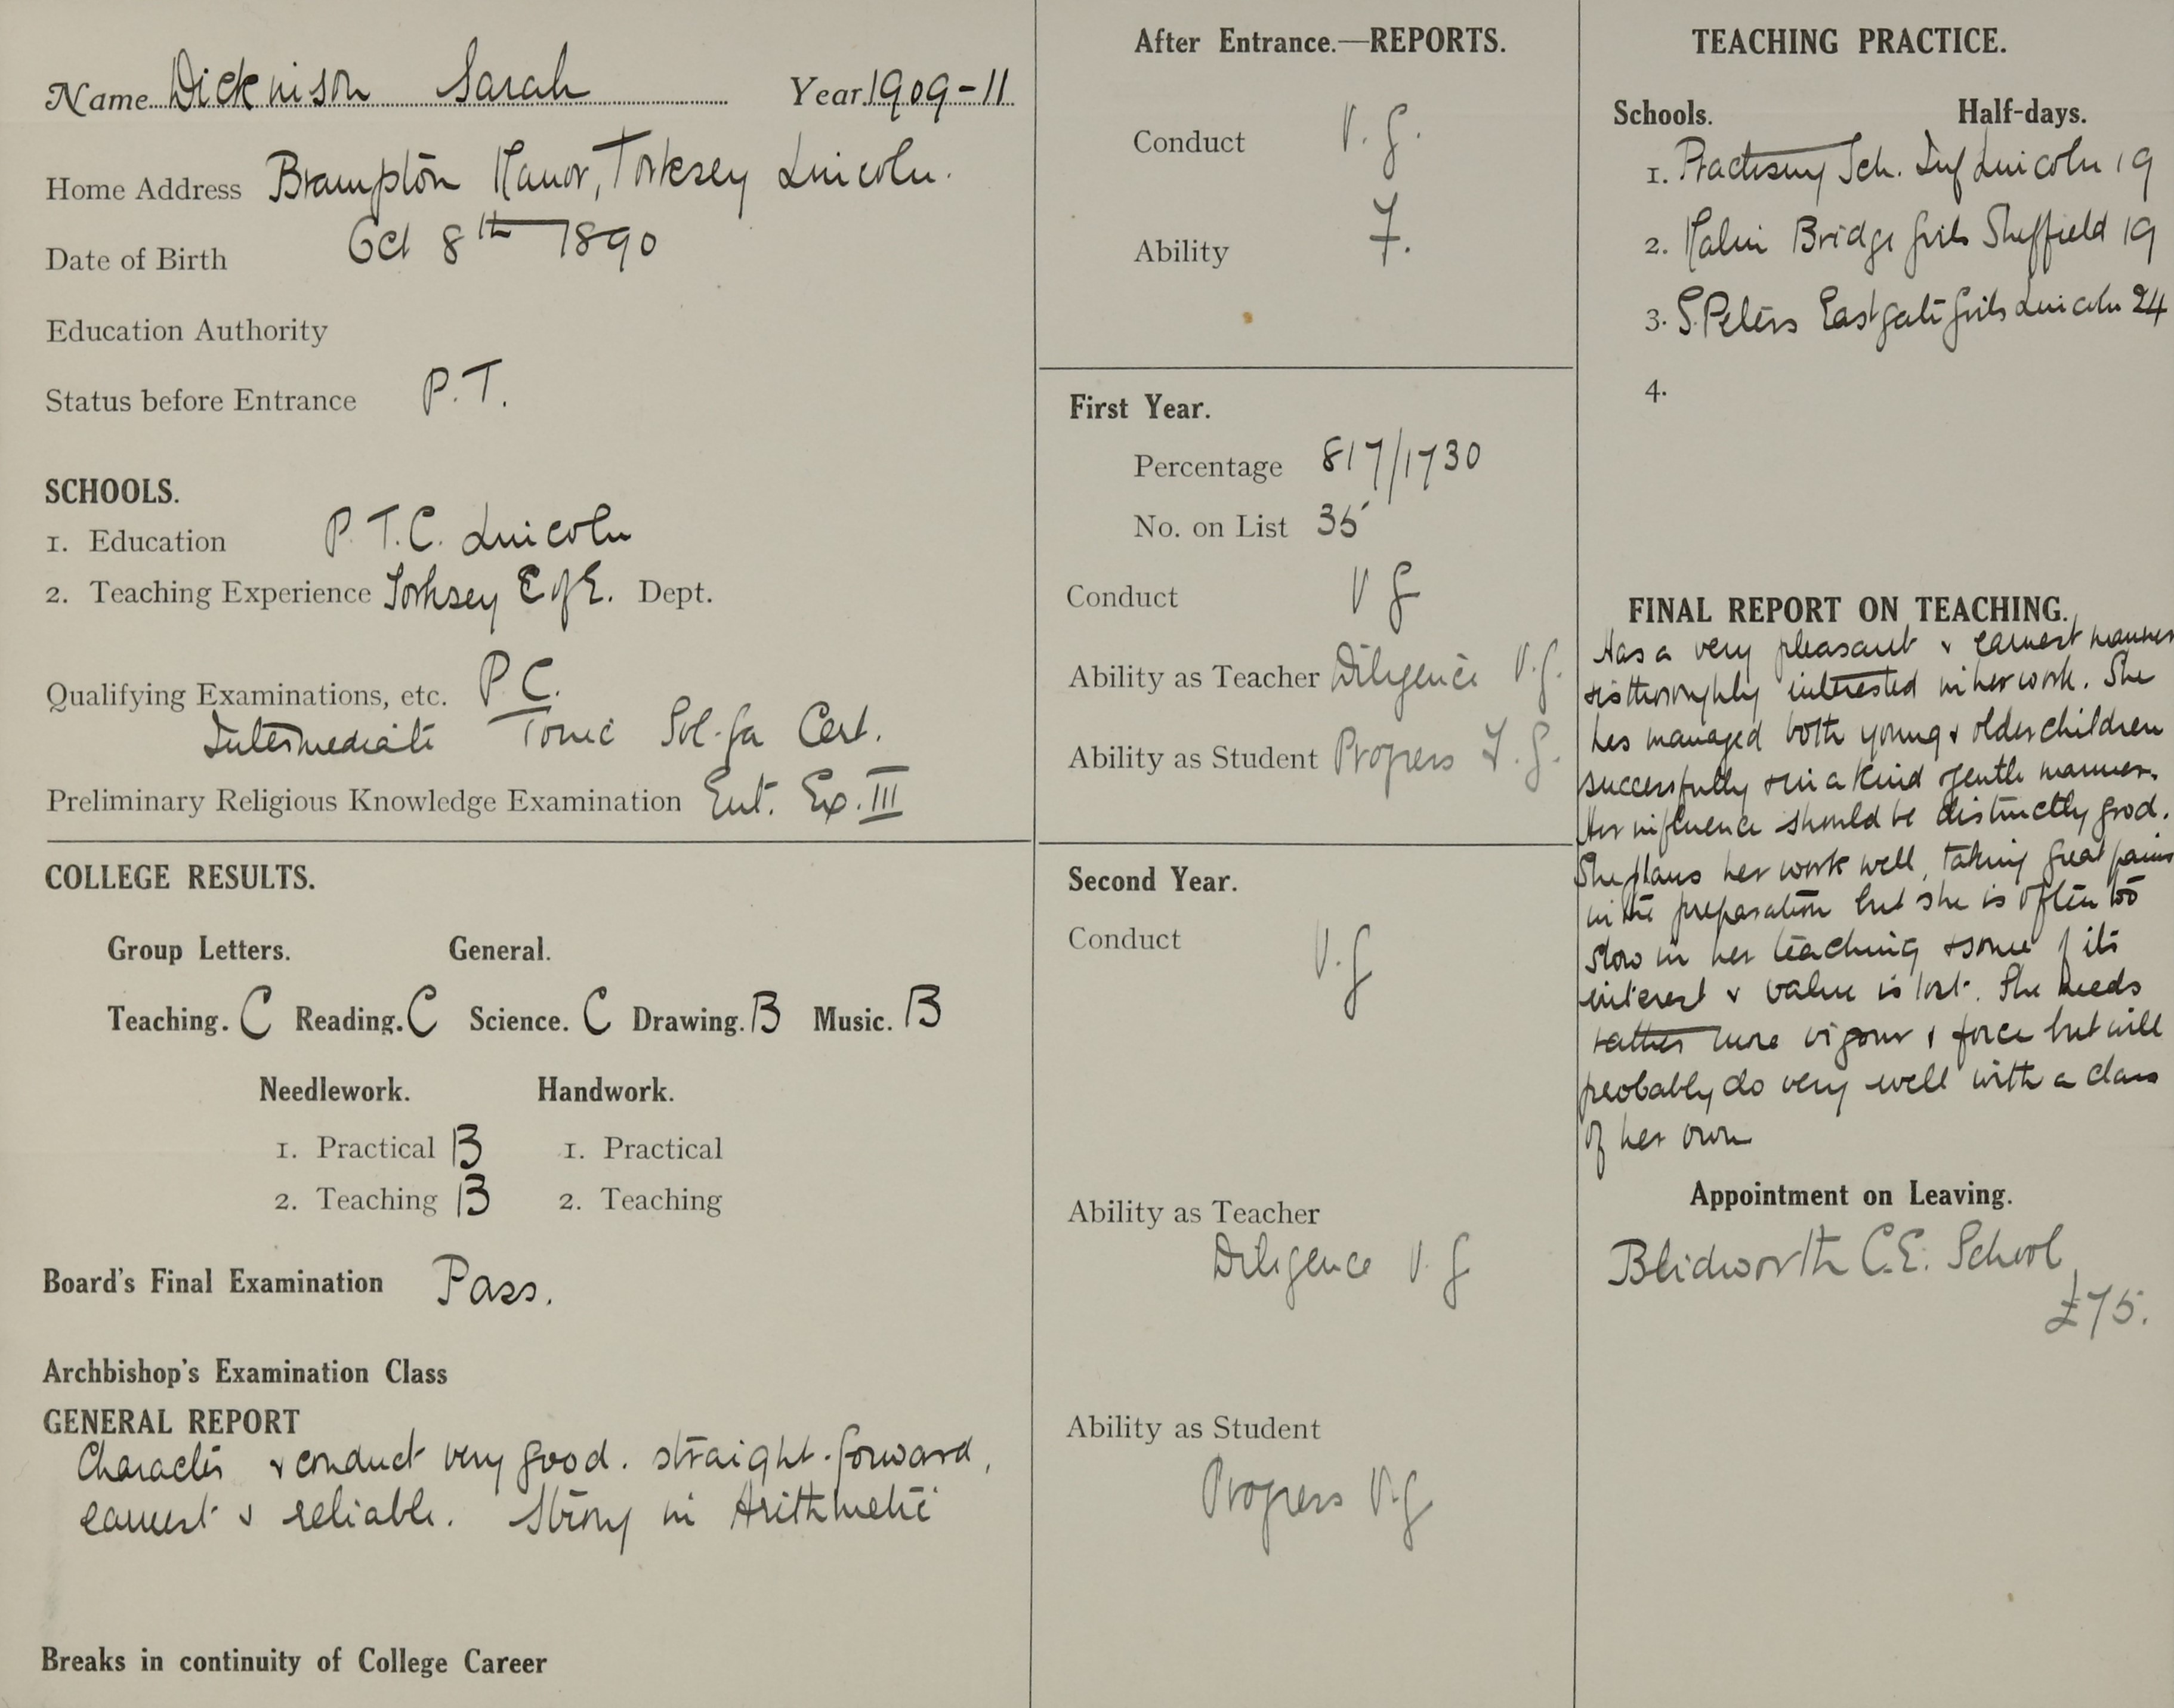 Name Dickinson Sarah Year 1909-11
Home Address Brampton Manor, Torksey Lincoln.
Date of Birth Oct 8th 1890
Education Authority
Status before Entrance P.T.
SCHOOLS.
1. Education P.T.C. Lincoln
2. Teaching Experience Torksey C of E. Dept.
Qualifying Examinations, etc. P.C.
Intermediate Tonic Sol-fa Cert.
Preliminary Religious Knowledge Examination Ent. Ex. III
COLLEGE RESULTS.
Group Letters. General.
Teaching. C Reading. C Science. C Drawing. B Music. B
Needlework. Handwork.
1. Practical B 1. Practical
2. Teaching B 2. Teaching
Board's Final Examination Pass.
Archbishop's Examination Class
GENERAL REPORT
Character & conduct very good. straight-forward,
earnest & reliable. Strong in Arithmetic
Breaks in continuity of College Career
After Entrance.—REPORTS.
Conduct V.g.
Ability F.
First Year.
Percentage 817/1730
No. on List 35
Conduct V g
Ability as Teacher Diligence V.g.
Ability as Student Progress F.g.
Second Year.
Conduct V.g
Ability as Teacher
Diligence V.g
Ability as Student
Progress V.g
TEACHING PRACTICE.
Schools. Half-days.
1. Practising Sch. Inf Lincoln 19
2. Malin Bridge Girls Sheffield 19
3. S. Peters Eastgate Girls Lincoln 24
4.
FINAL REPORT ON TEACHING.
Has a very pleasant & earnest manner
& is thoroughly interested in her work. She
has managed both young & older children
successfully & in a kind & gentle manner.
Her influence should be distinctly good.
She plans her work well, taking great pains
in the preparation but she is often too
slow in her teaching & some of its
interest & value is lost. She needs
rather more vigour & force but will
probably do very well with a class
of her own
Appointment on Leaving.
Blidworth C.E. School
£75.